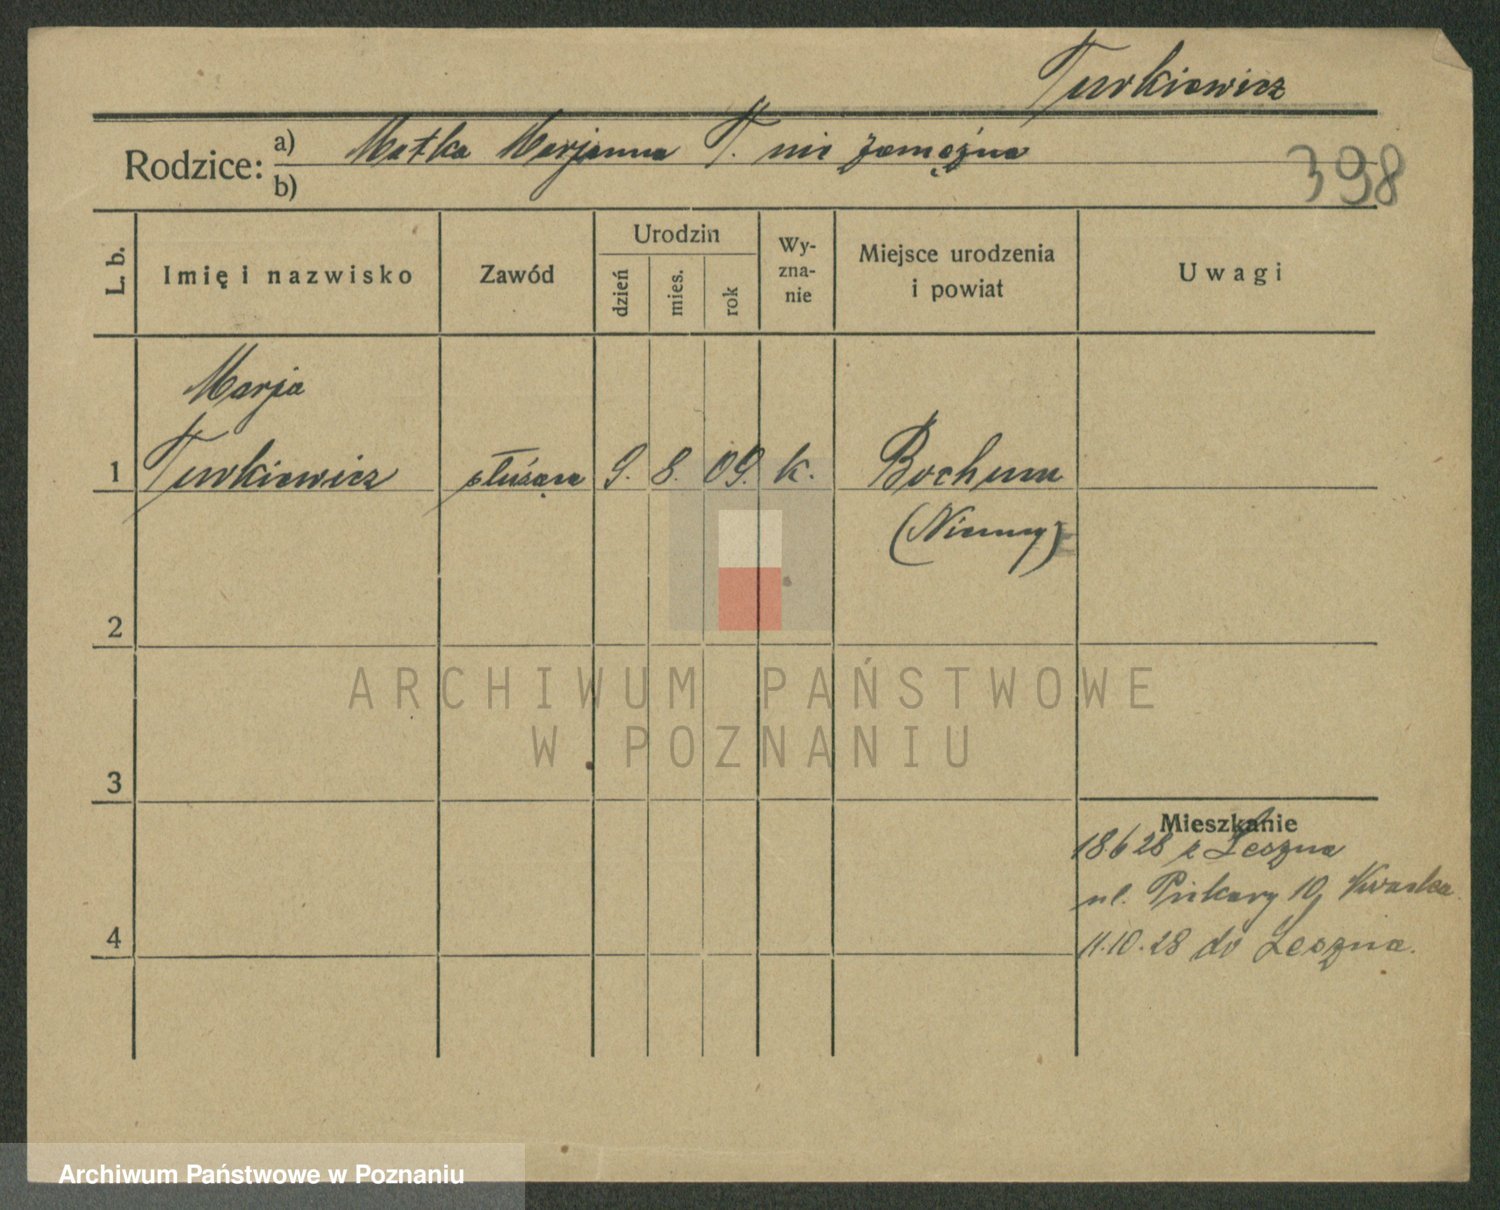 Turkiewicz
Rodzice:
a) Matka Marjanna T. nie zamężna
b)
398
L. b.
Imię i nazwisko
Zawód
Urodzin
dzień
mies.
rok
Wy-
zna-
nie
Miejsce urodzenia
i powiat
Uwagi
Marja
1 Turkiewicz służąca 9. 8. 09. k. Bochum
(Niemcy)
2
3
4
Mieszkanie
18 6 28 z Leszna
ul. Piekary 10
11.10.28 do Leszna.
ARCHIWUM PAŃSTWOWE
W POZNANIU
Archiwum Państwowe w Poznaniu